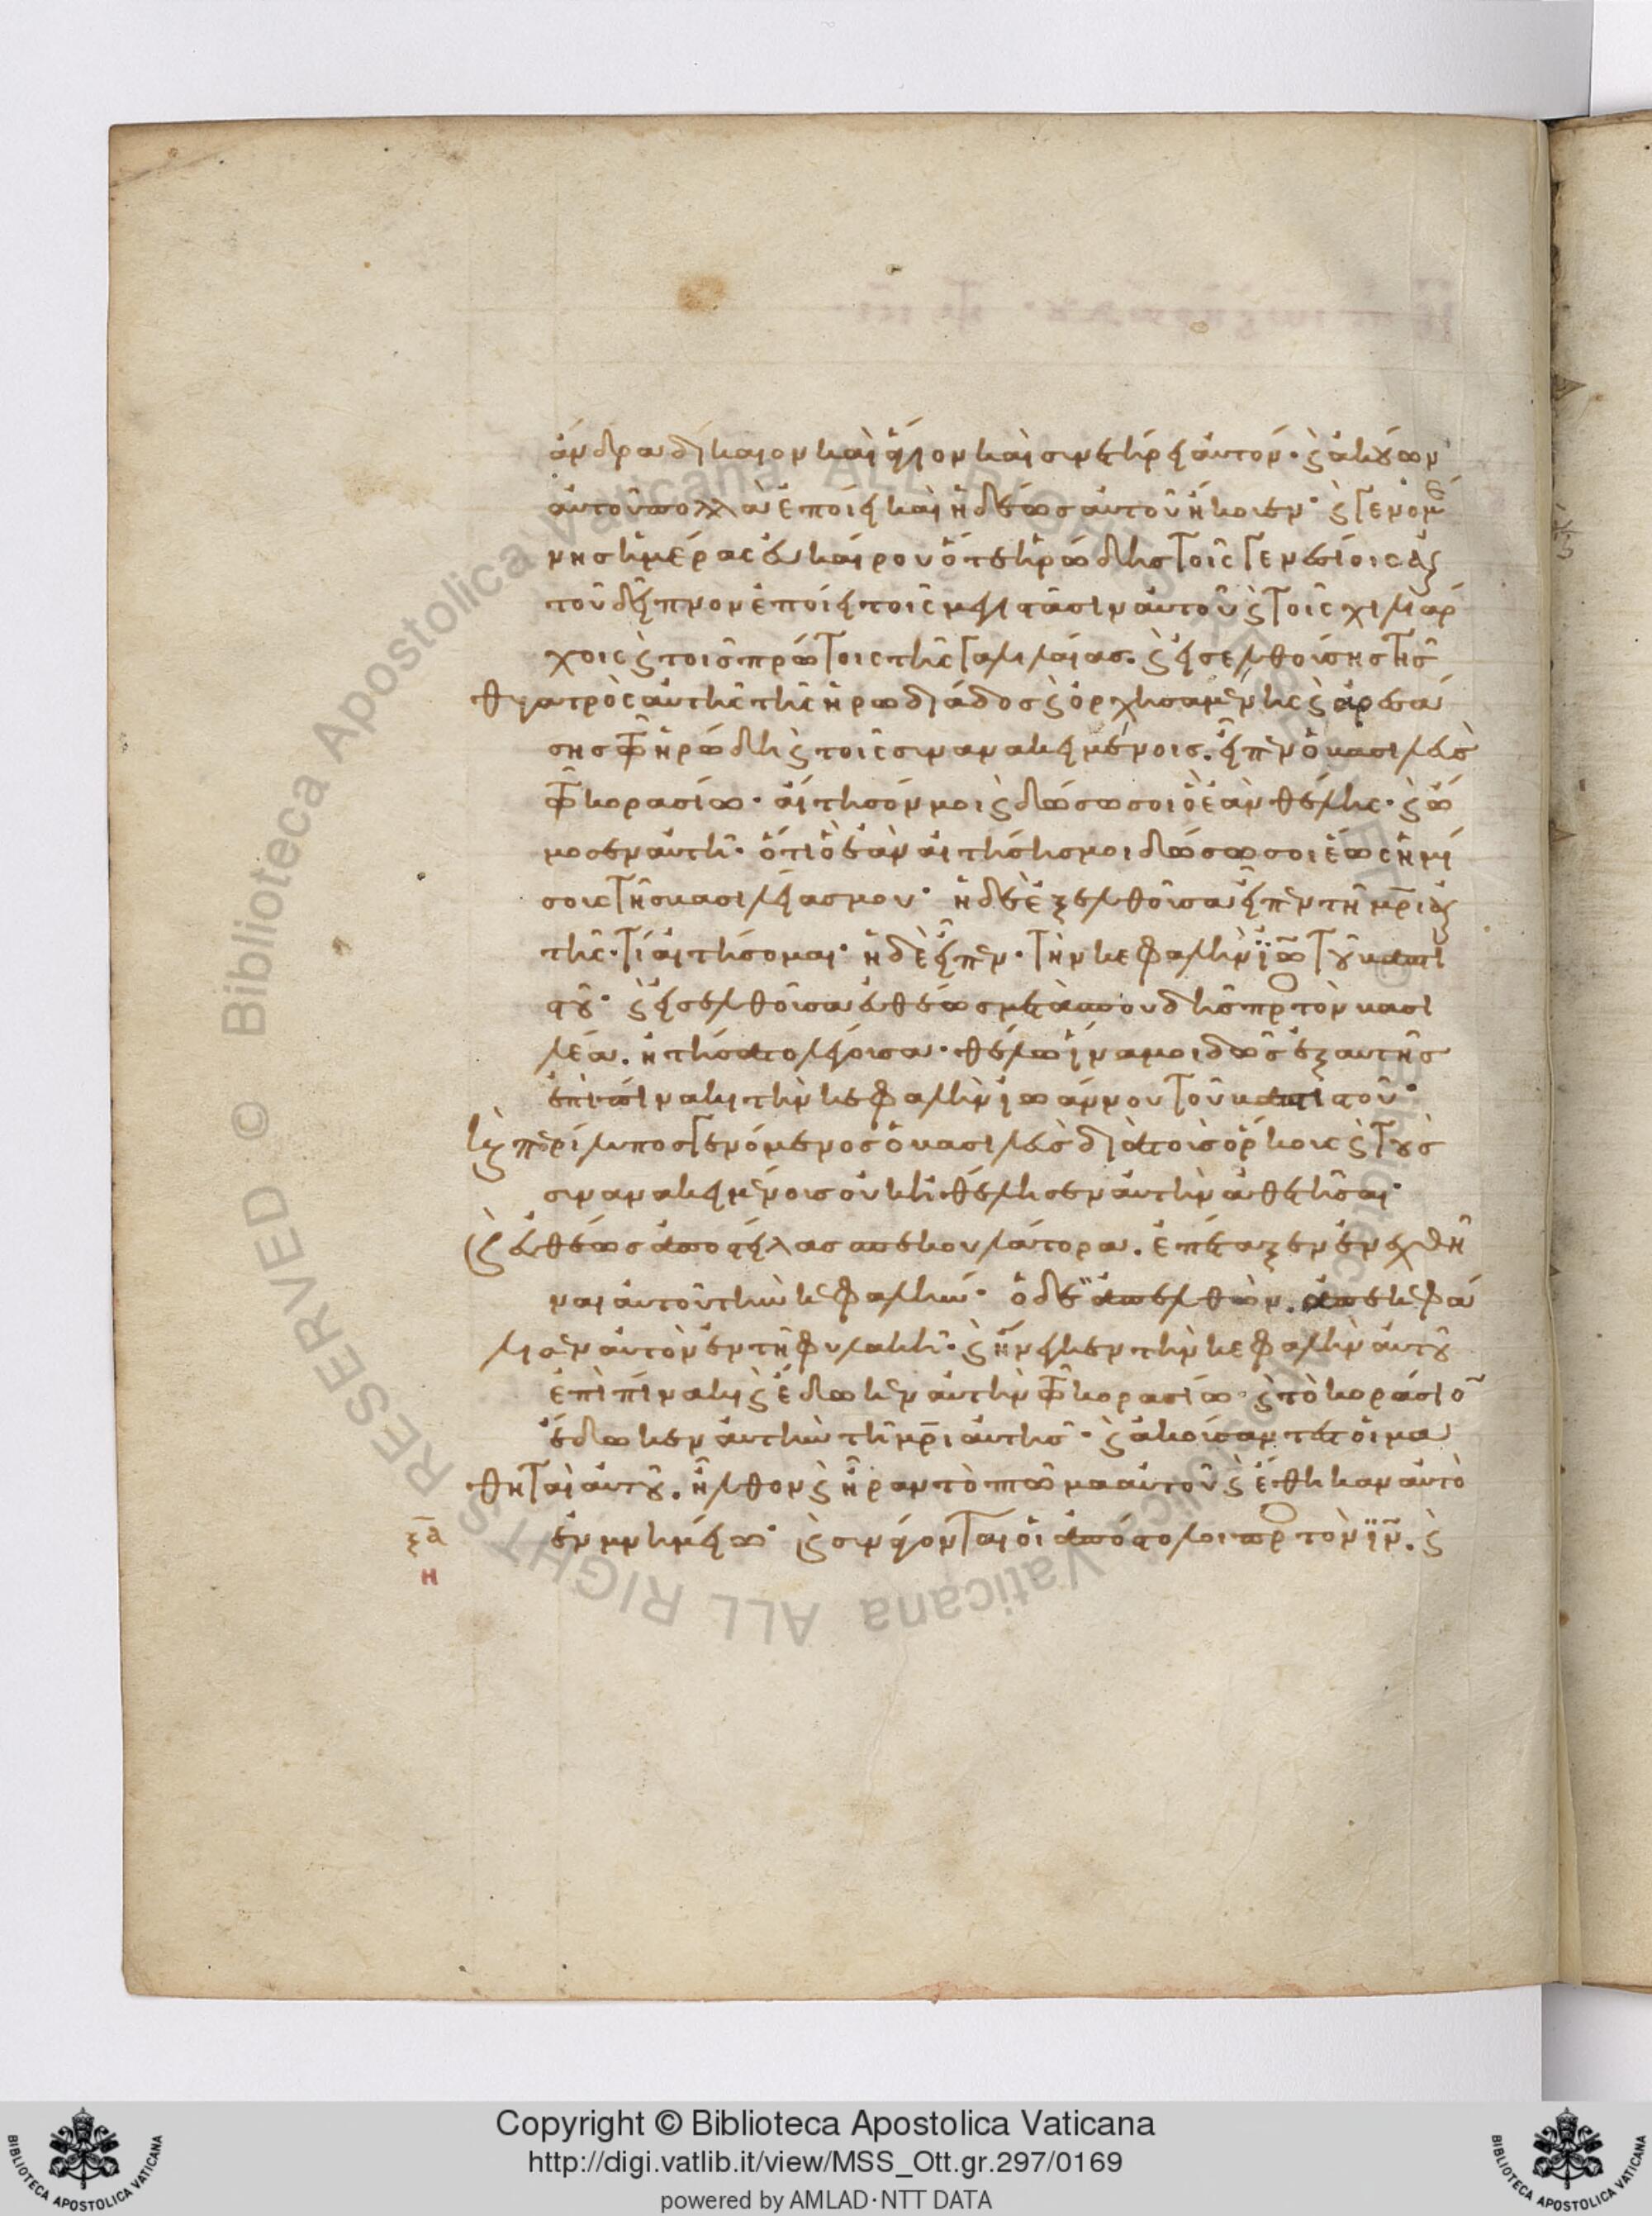 ἄνδρα δίκαιον καὶ ἅγιον καὶ συνετήρει αὐτόν· ϗ ἀκούων
αὐτοῦ πολλὰ ἐποίει καὶ ἡδέως αὐτοῦ ἤκουεν· ϗ γενομέ
νης ἡμέρας εὐκαίρου ὅτε ἡρώδης τοῖς γενεσίοις αὐ
τοῦ δεῖπνον ἐποίει τοῖς μεγιστᾶσιν αὐτοῦ ϗ τοῖς χιλιάρ
χοις ϗ τοῖς πρώτοις τῆς γαλιλαίας. ϗ εἰσελθούσης τῆς
θυγατρὸς αὐτῆς τῆς ἡρωδιάδος ϗ ὀρχησαμένης ϗ ἀρεσά
σης τῷ ἡρώδη ϗ τοῖς συνανακειμένοις. εἶπεν ὁ βασιλεὺς
τῷ κορασίω· αἴτησόν μοι ϗ δώσω σοι ὃ ἐὰν θέλης· ϗ ὤ
μοσεν αὐτῆ· ὅτι ὃ ἐὰν αἰτήσης μοι δώσω σοι ἕως ἡμί
σους τῆς βασιλείας μου· ἡ δὲ ἐξελθοῦσα εἶπεν τῆ μρ̅ι αὐ
τῆς· τί αἰτήσομαι· ἡ δὲ εἶπεν· τὴν κεφαλὴν ϊω̅ τοῦ βαπτι
στοῦ· ϗ εἰσελθοῦσα εὐθέως μετὰ σπουδῆς πρὸς τὸν βασι
λέα. ἠτήσατο λέγουσα· θέλω ἵνα μοι δῶς ἐξαυτῆς
ἐπὶ πίνακι τὴν κεφαλὴν ἰωάννου τοῦ βαπτιστοῦ·
κὶ περίλυπος γενόμενος ὁ βασιλεὺς διὰ τοὺς ὅρκους ϗ τοὺς
συνανακειμένους οὐκ ἠθέλησεν αὐτὴν ἀθετῆσαι·
ϗ εὐθέως ἀποστείλας σπεκουλάτορα. ἐπέταξεν ἐνεχθῆ
ναι αὐτοῦ τὴν κεφαλήν· ὁ δὲ ἀπελθὼν. ἀπεκεφά
λισεν αὐτὸν ἐν τῆ φυλακῆ· ϗ ἤνεγκεν τὴν κεφαλὴν αὐτοῦ
ἐπὶ πίνακι ϗ ἔδωκεν αὐτὴν τῷ κορασίω· ϗ τὸ κοράσιο̅
ἔδωκεν αὐτὴν τῆ μρ̅ι αὐτῆς· ϗ ἀκούσαντες οἱ μα
θηταὶ αὐτοῦ. ἦλθον ϗ ἦραν τὸ πτῶμα αὐτοῦ ϗ ἔθηκαν αὐτὸ
ξα̅
η
ἐν μνημείω· ϗ συνάγονται οἱ ἀπόστολοι πρὸς τὸν ϊν̅. ϗ
Copyright © Biblioteca Apostolica Vaticana
http://digi.vatlib.it/view/MSS_Ott.gr.297/0169
powered by AMLAD·NTT DATA
BIBLIOTECA APOSTOLICA VATICANA
BIBLIOTECA APOSTOLICA VATICANA
© Biblioteca Apostolica Vaticana ALL RIGHTS RESERVED
© Biblioteca Apostolica Vaticana ALL RIGHTS RESERVED